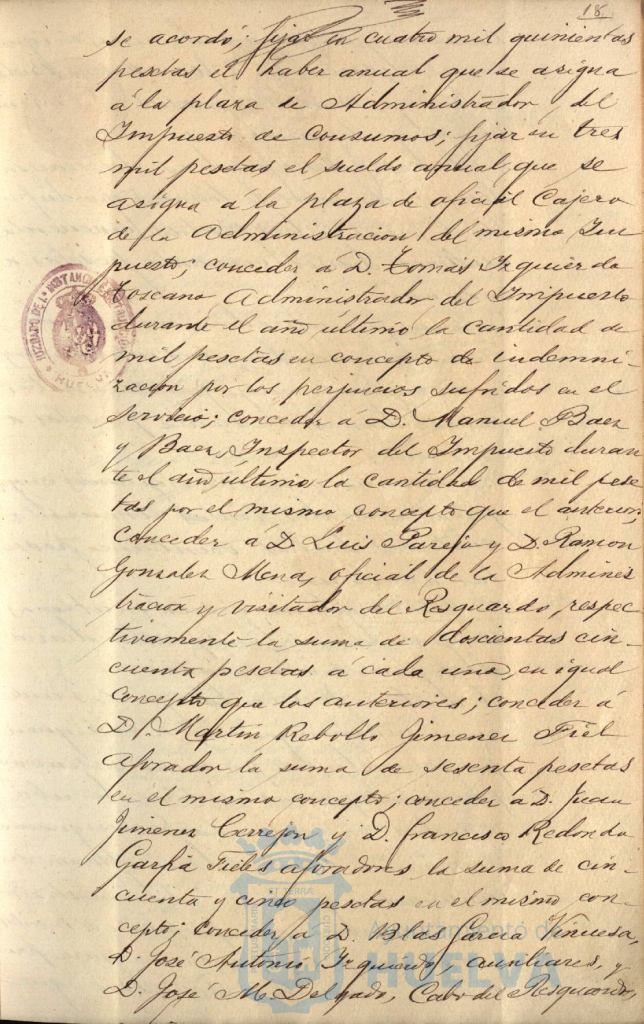 18.
se acordó; fijar en cuatro mil quinientas
pesetas el haber anual que se asigna
á la plaza de Administrador, del
Impuesto de Consumos; fijar en tres
mil pesetas el sueldo anual que se
asigna á la plaza de oficial Cajero
de la Administracion del mismo Im
puesto; conceder á D. Tomás Izquierdo
Toscano Administrador del Impuesto
durante el año último la cantidad de
mil pesetas en concepto de indemni-
zacion por los perjuicios sufridos en el
servicio; conceder á D. Manuel Baez
y Baez, Inspector del Impuesto duran
te el año último la cantidad de mil pese
tas por el mismo concepto que el anterior,
conceder á D. Luis Parejo y D. Ramon
Gonzalez Mena, oficial de la Adminis
tracion y visitador del Resguardo, respec
tivamente la suma de doscientas cin-
cuenta pesetas á cada uno, en igual
concepto que los anteriores; conceder á
D. Martin Rebollo Jimenez Fiel
aforador la suma de sesenta pesetas
en el mismo concepto; conceder á D. Juan
Jimenez Cerrejon y D. Francisco Redondo
Garfia Fieles aforadores la suma de cin-
cuenta y cinco pesetas en el mismo con-
cepto; conceder á D. Blas Garcia Viñuesa,
D. José Antonio Izquierdo, auxiliares, y
D. José M. Delgado, Cabo del Resguardo,
HUELVA
Ayuntamiento de
HUELVA